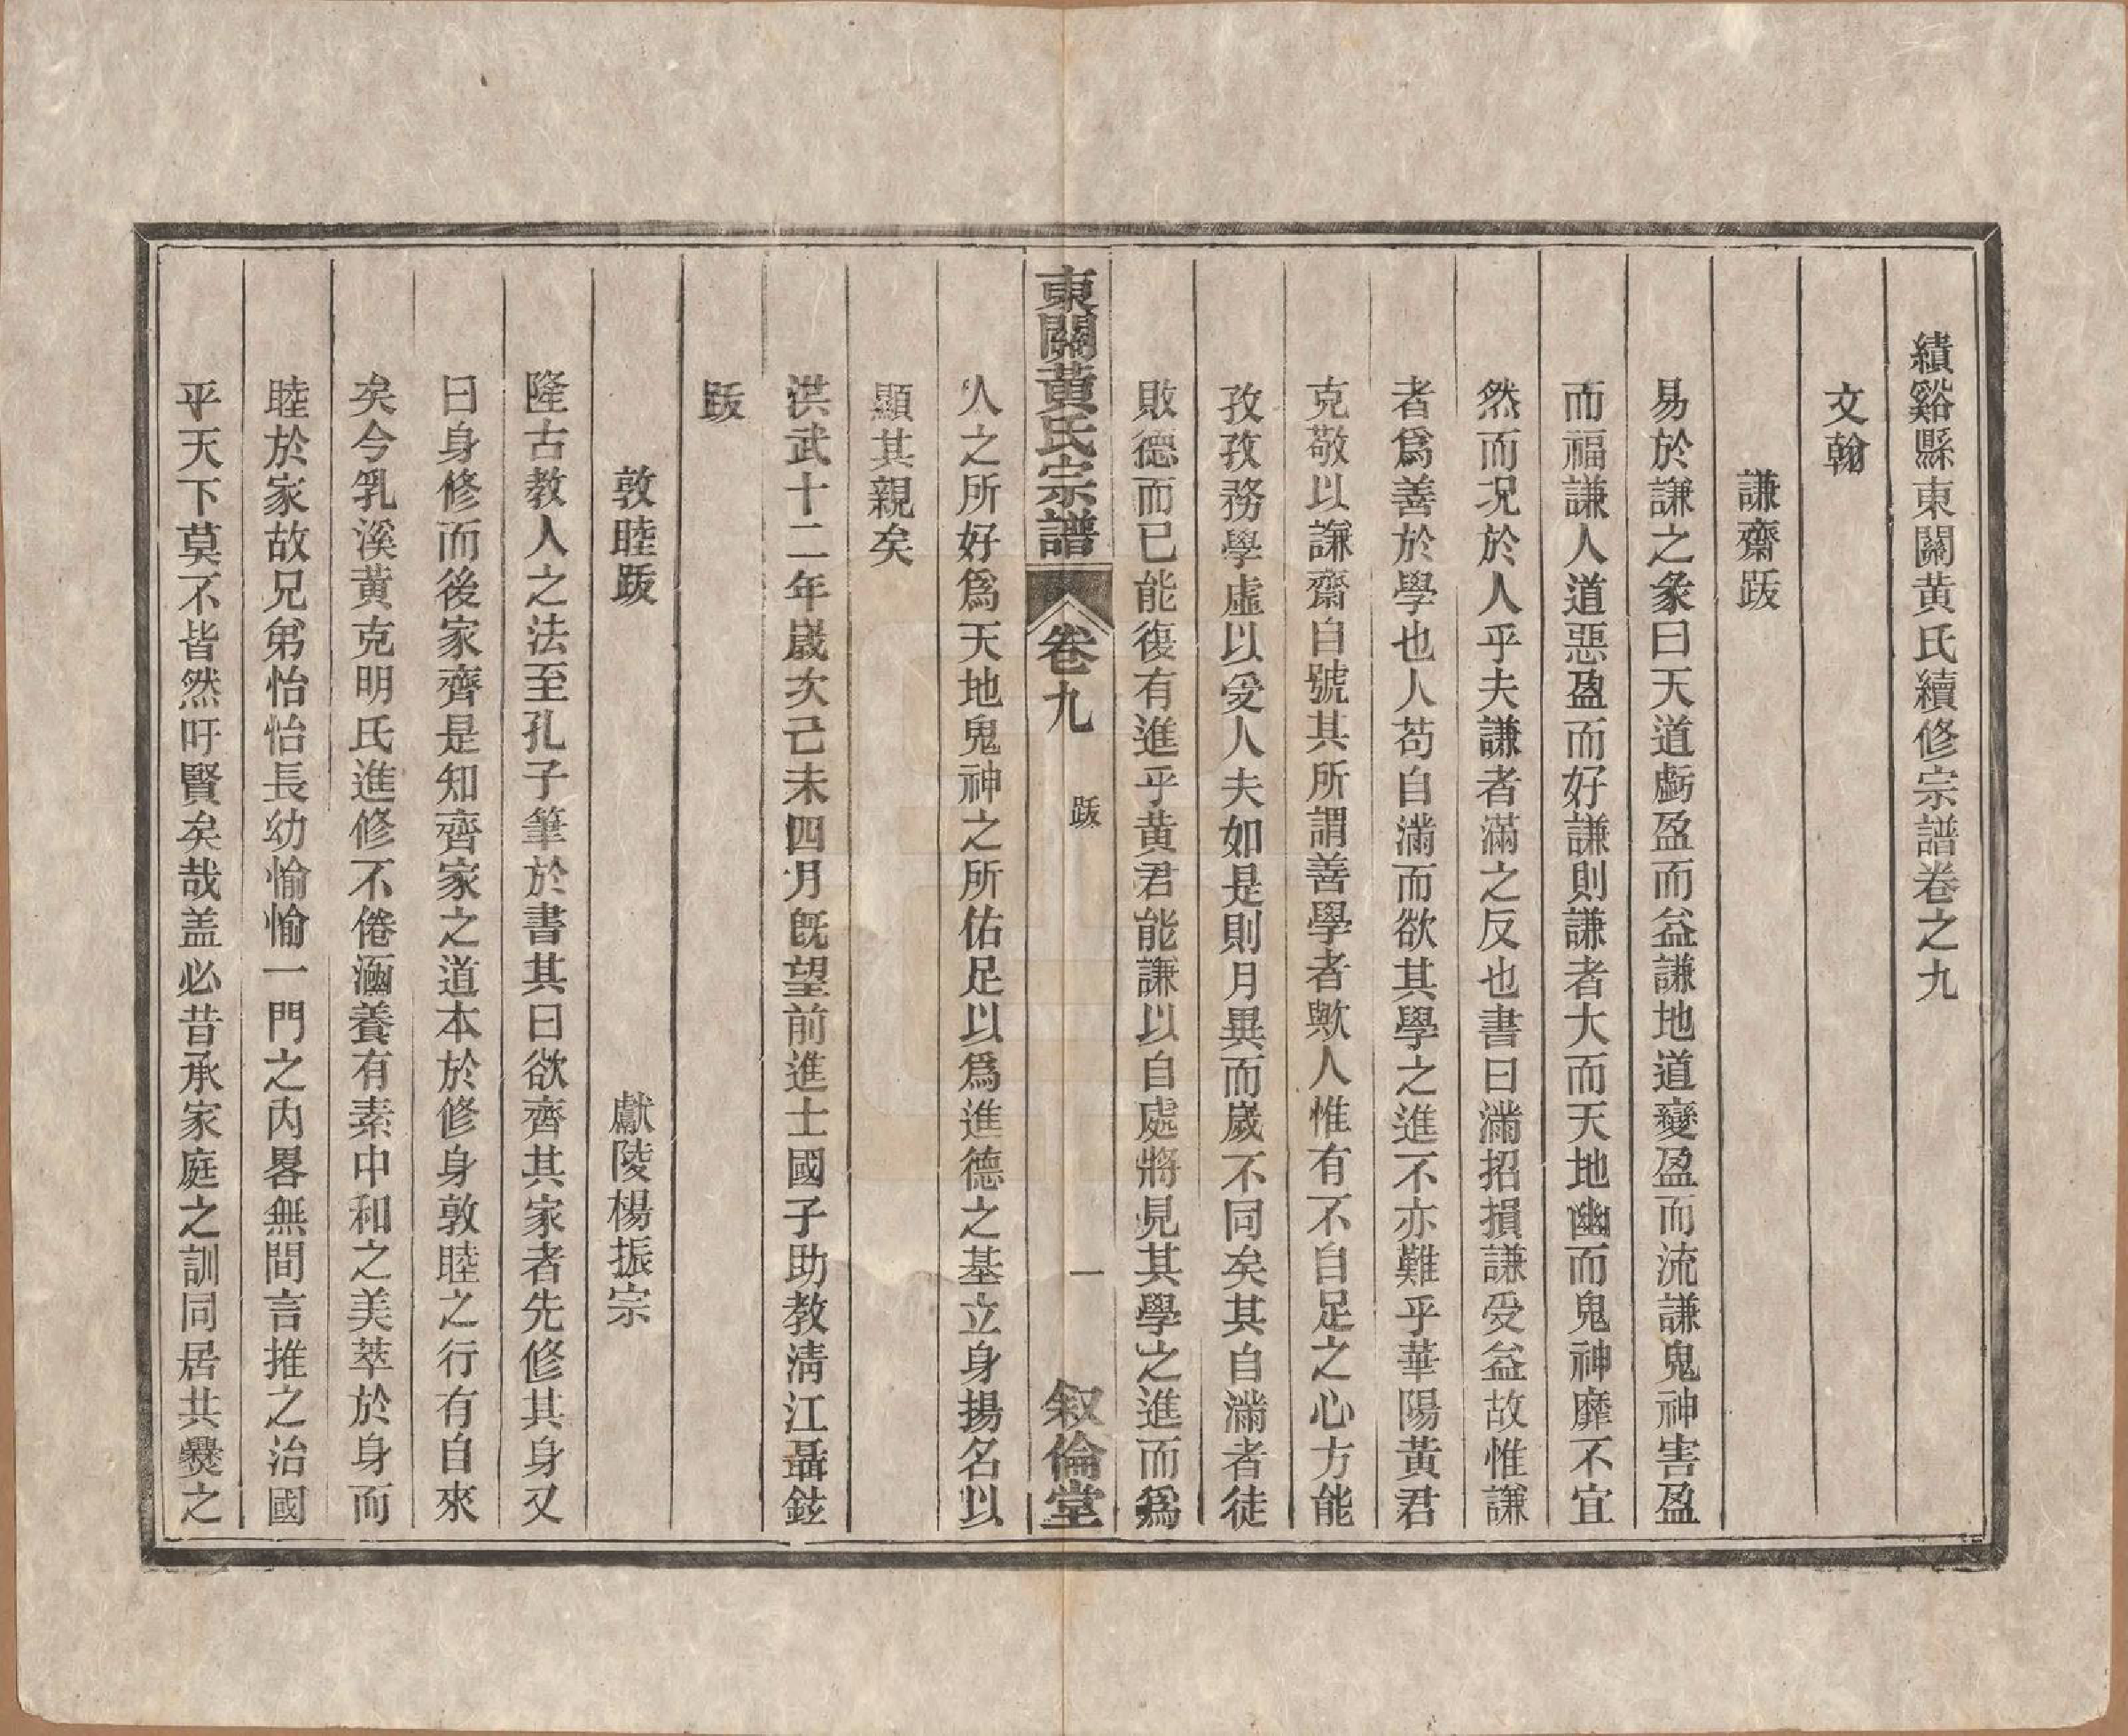 績谿縣東關黃氏續修宗譜卷之九
文翰
謙齋跋
易於謙之彖曰天道虧盈而益謙地道變盈而流謙鬼神害盈
而福謙人道惡盈而好謙則謙者大而天地幽而鬼神靡不宜
然而况於人乎夫謙者滿之反也書曰滿招損謙受益故惟謙
者爲善於學也人苟自滿而欲其學之進不亦難乎華陽黃君
克敬以謙齋自號其所謂善學者歟人惟有不自足之心方能
孜孜務學虛以受人夫如是則月異而歲不同矣其自滿者徒
敗德而已能復有進乎黃君能謙以自處將見其學之進而爲
東關黃氏宗譜
卷九
跋
一
叙倫堂
人之所好爲天地鬼神之所佑足以爲進德之基立身揚名以
顯其親矣
洪武十二年歲次己未四月旣望前進士國子助教淸江聶鉉
跋
敦睦跋
獻陵楊振宗
隆古教人之法至孔子筆於書其曰欲齊其家者先修其身又
曰身修而後家齊是知齊家之道本於修身敦睦之行有自來
矣今乳溪黃克明氏進修不倦涵養有素中和之美萃於身而
睦於家故兄弟怡怡長幼愉愉一門之內畧無間言推之治國
平天下莫不皆然吁賢矣哉盖必昔承家庭之訓同居共爨之